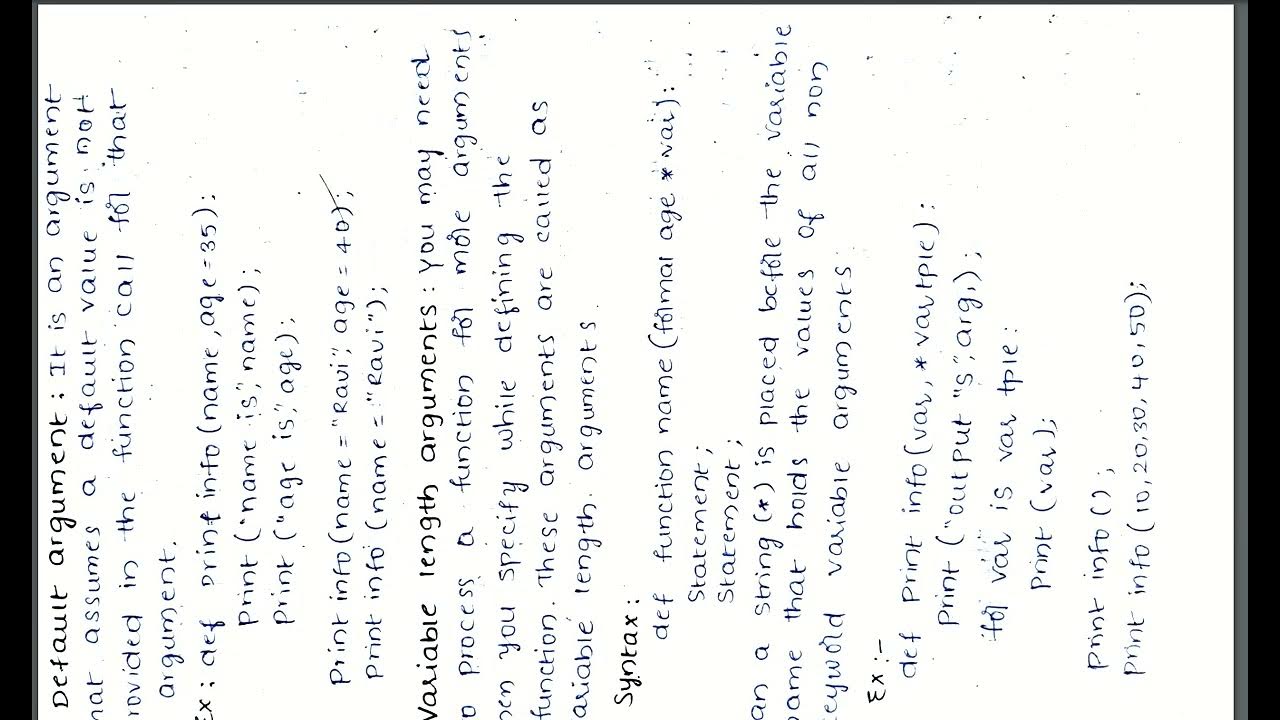 Default argument : It is an argument
hat assumes a default value is not
rovided in the function call for that
argument.
Ex : def print info (name, age = 35) :
print ("name is", name) ;
print ("age is", age) ;
print info (name = "Ravi", age = 40) ;
print info (name = "Ravi") ;
variable length arguments : you may need
o process a function for more arguments
en you specify while defining the
function. These arguments are called as
ariable length. arguments.
Syntax :
def function name (formal age * var) :
Statement ;
Statement ;
an a string (*) is placed before the variable
name that holds the values of all non
keyword variable arguments.
Ex :-
def print info (var, * var tple) :
print ("output "s", arg,) ;
for var is var tple :
print (var) ;
print info () ;
print info (10, 20, 30, 40, 50) ;